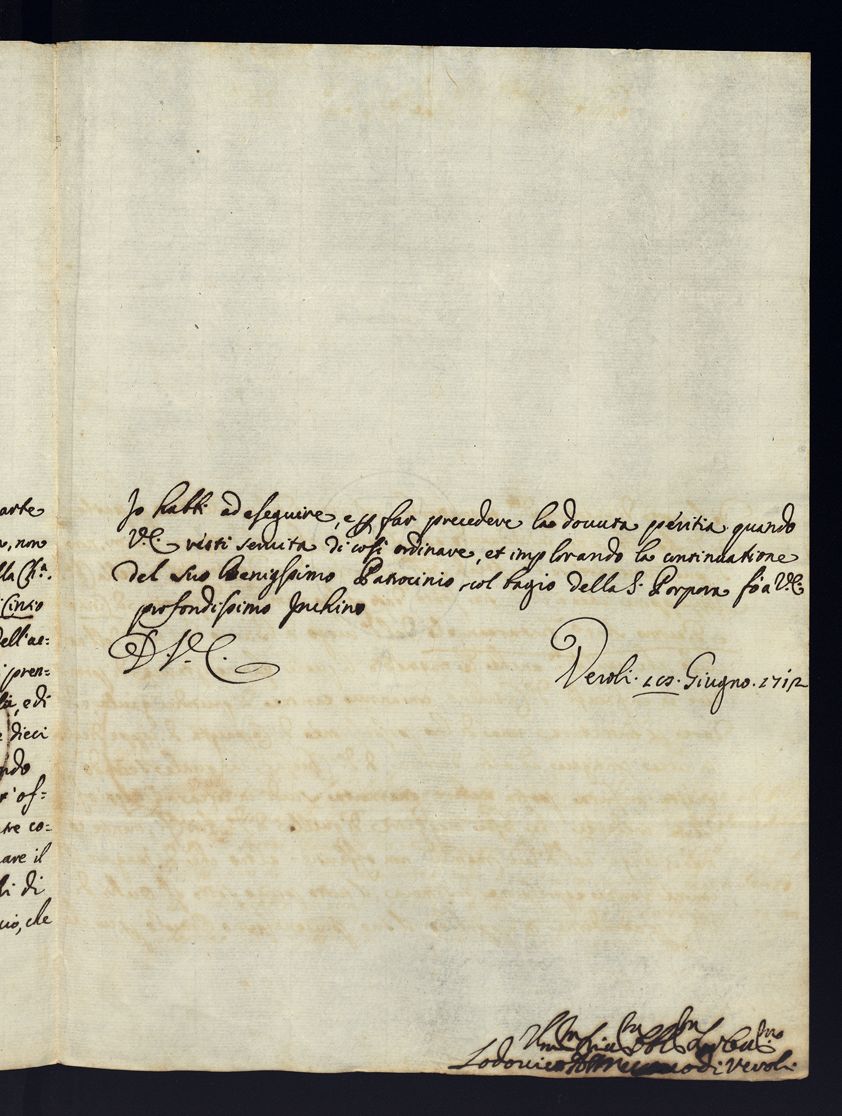 arte
o, non
lla Ch.a
Cinto
dell'ac:
pren=
tà, e di
e dieci
ndo
r'of=
tre co:
are il
di
cio, che
Io habbi ad eseguire, e far precedere la dovuta peritia quando
V.E. resti servita di così ordinare, et implorando la continuatione
del suo benignissimo Patrocinio, col bagio della S. Porpora fò a V.E.
profondissimo Inchino
D. V. E.
Veroli. Giugno. 1712
Um.
Lodovico di Veroli